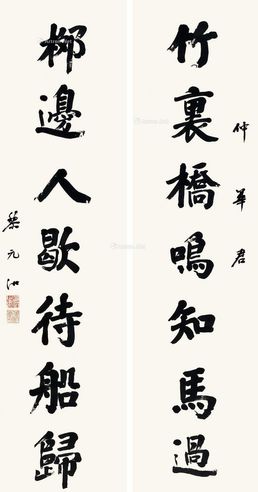 仲華君
竹裏橋鳴知馬過
柳邊人歇待船歸
黎元洪